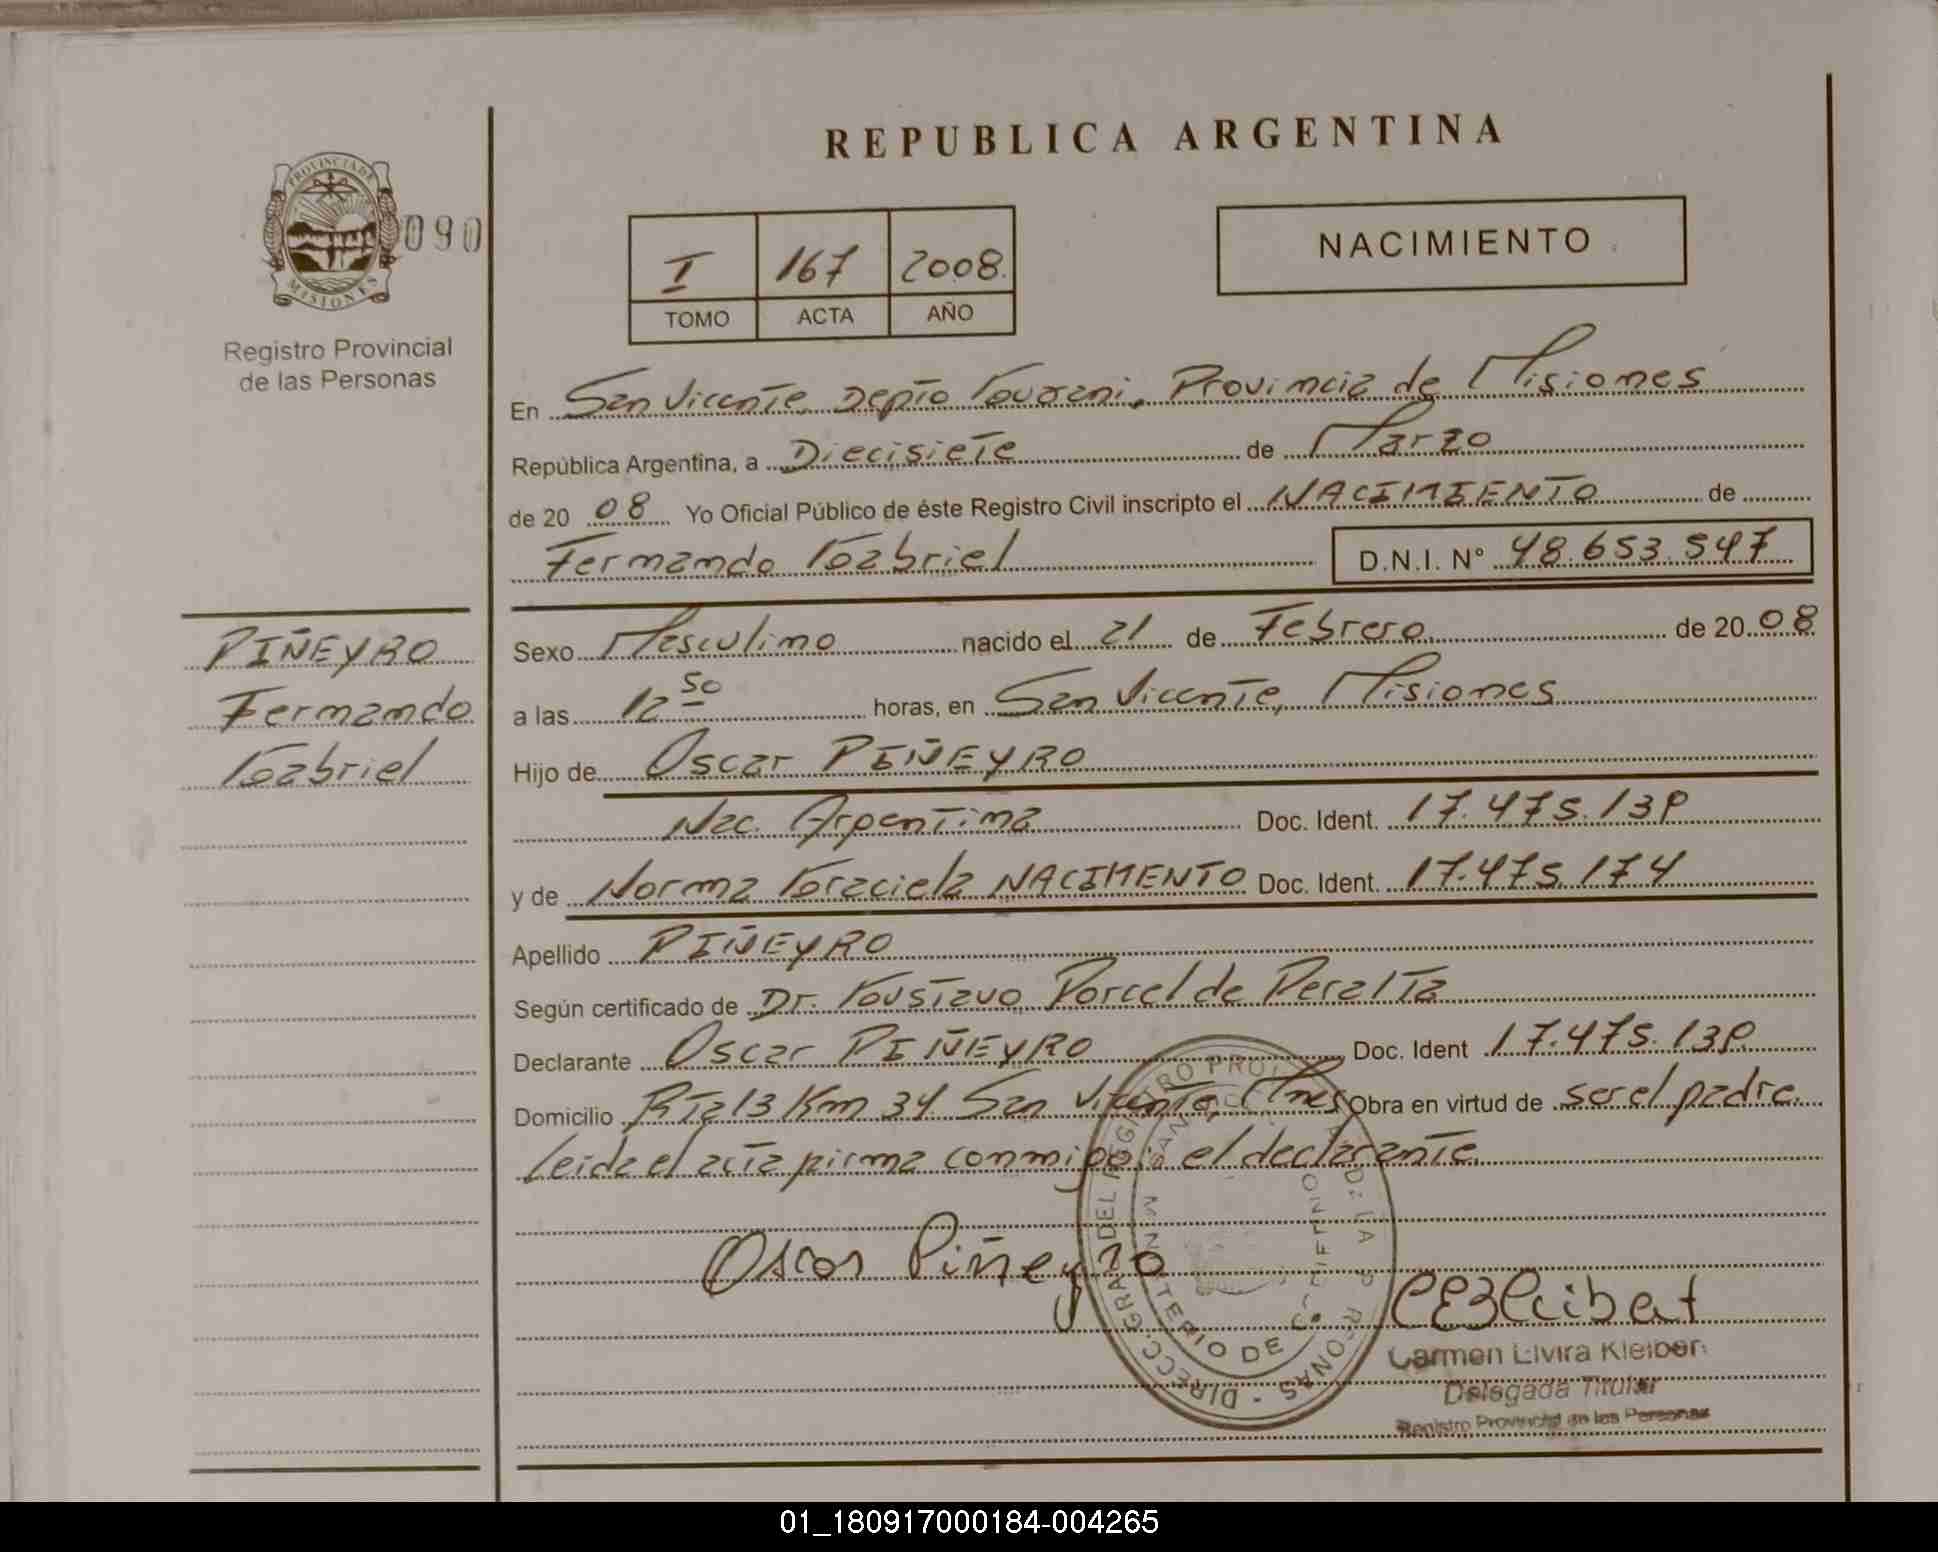 REPUBLICA ARGENTINA
PROVINCIA DE
MISIONES
090
Registro Provincial
de las Personas
I 167 2008.
TOMO ACTA AÑO
NACIMIENTO
En San Vicente, Depto Guarani, Provincia de Misiones
República Argentina, a Diecisiete de Marzo
de 20 08 Yo Oficial Público de éste Registro Civil inscripto el NACIMIENTO de
Fernando Gabriel D.N.I. N° 48.653.547
PIÑEYRO
Fernando
Gabriel
Sexo Masculino nacido el 21 de Febrero de 20 08
a las 12 50 horas, en San Vicente, Misiones
Hijo de Oscar PIÑEYRO
Nac. Argentina Doc. Ident. 17.475.139
y de Norma Graciela NACIMENTO Doc. Ident. 17.475.174
Apellido PIÑEYRO
Según certificado de Dr. Gustavo Porcel de Peralta
Declarante Oscar PIÑEYRO Doc. Ident 17.475.139
Domicilio Rta 13 Km 34 San Vicente, Mnes Obra en virtud de ser el padre.
Leida el acta firma conmigo el declarante
Oscar Piñeyro
DIRECC. GRAL DEL REGISTRO PROV
MINISTERIO DE
Carmen Elvira Kleiber
Delegada Titular
Registro Provincial de las Personas
01_180917000184-004265